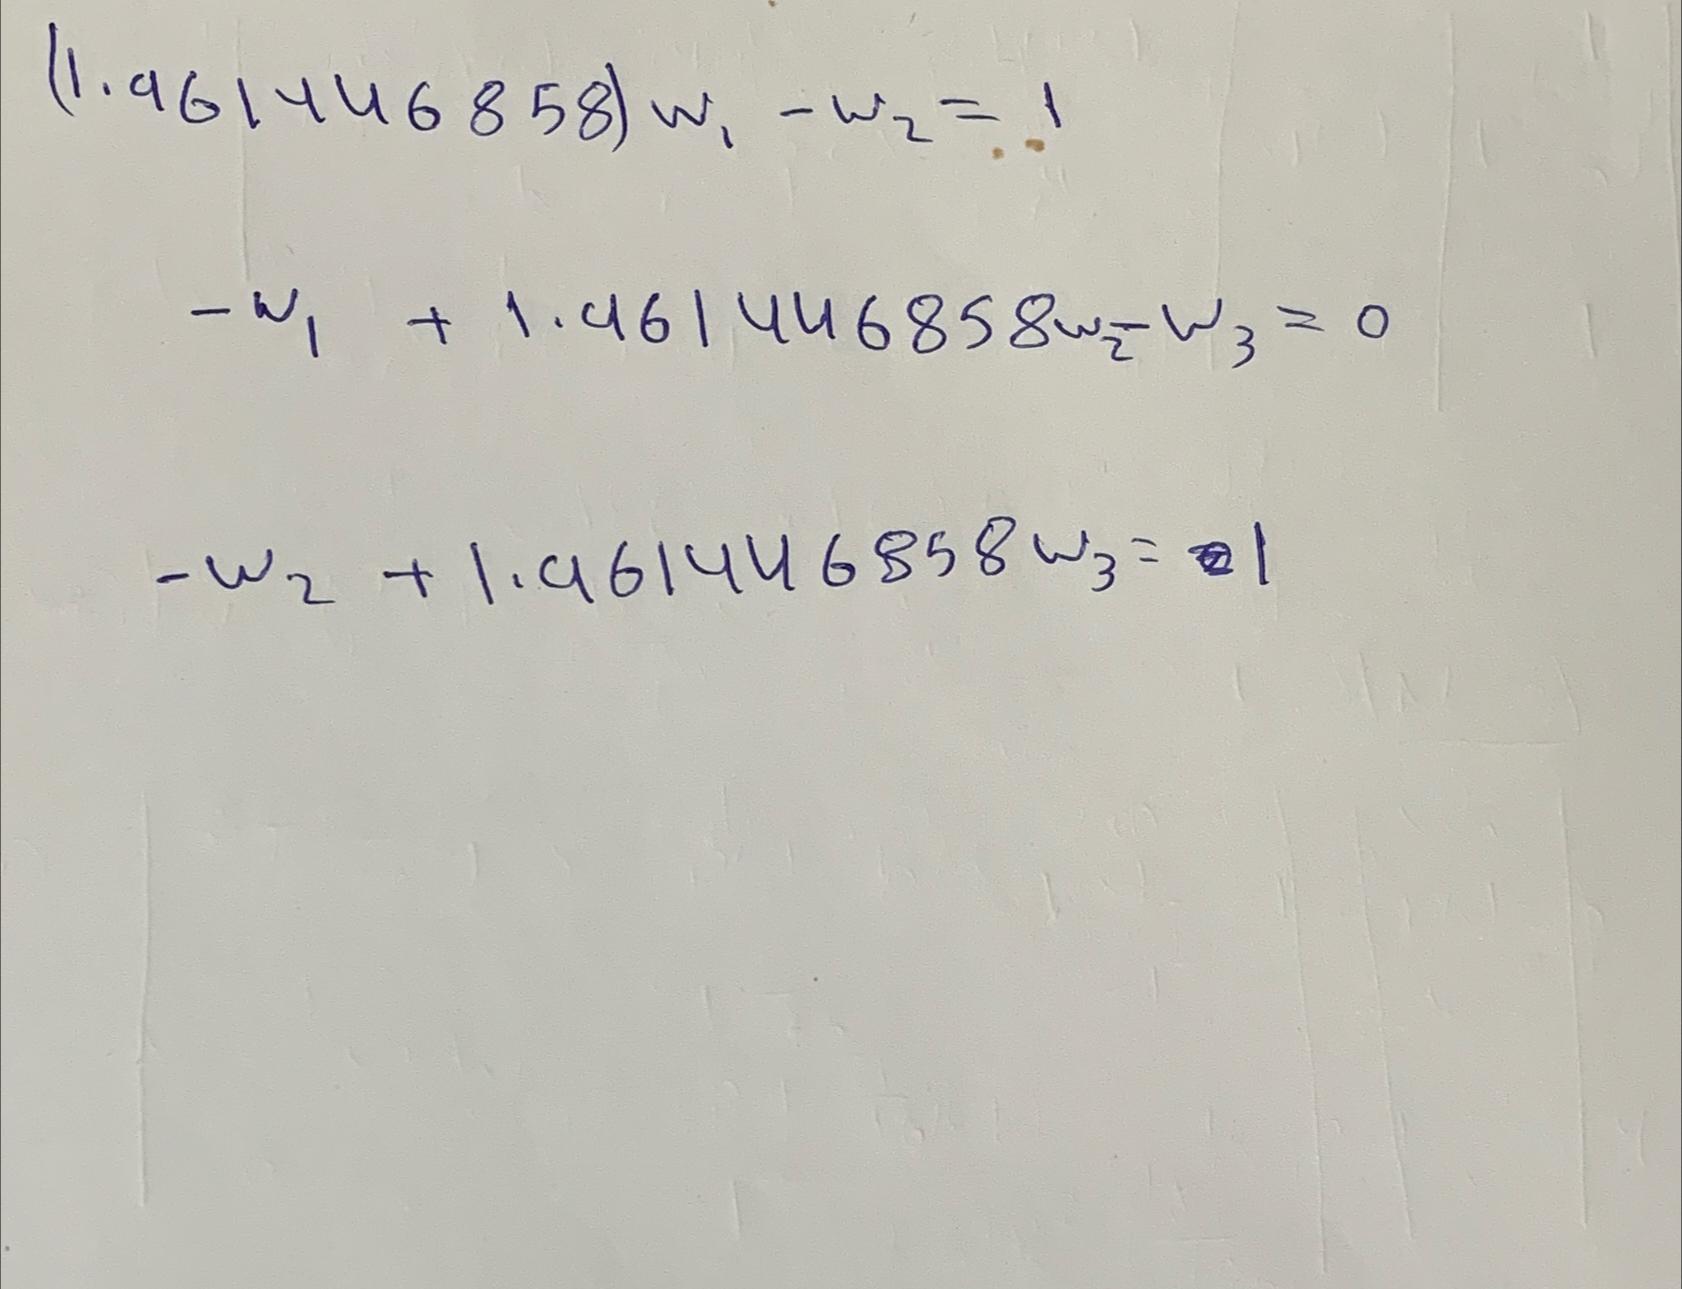 (1.961446858) w₁ - w₂ = 1
- w₁ + 1.961446858w₂ - w₃ = 0
- w₂ + 1.961446858 w₃ = 1